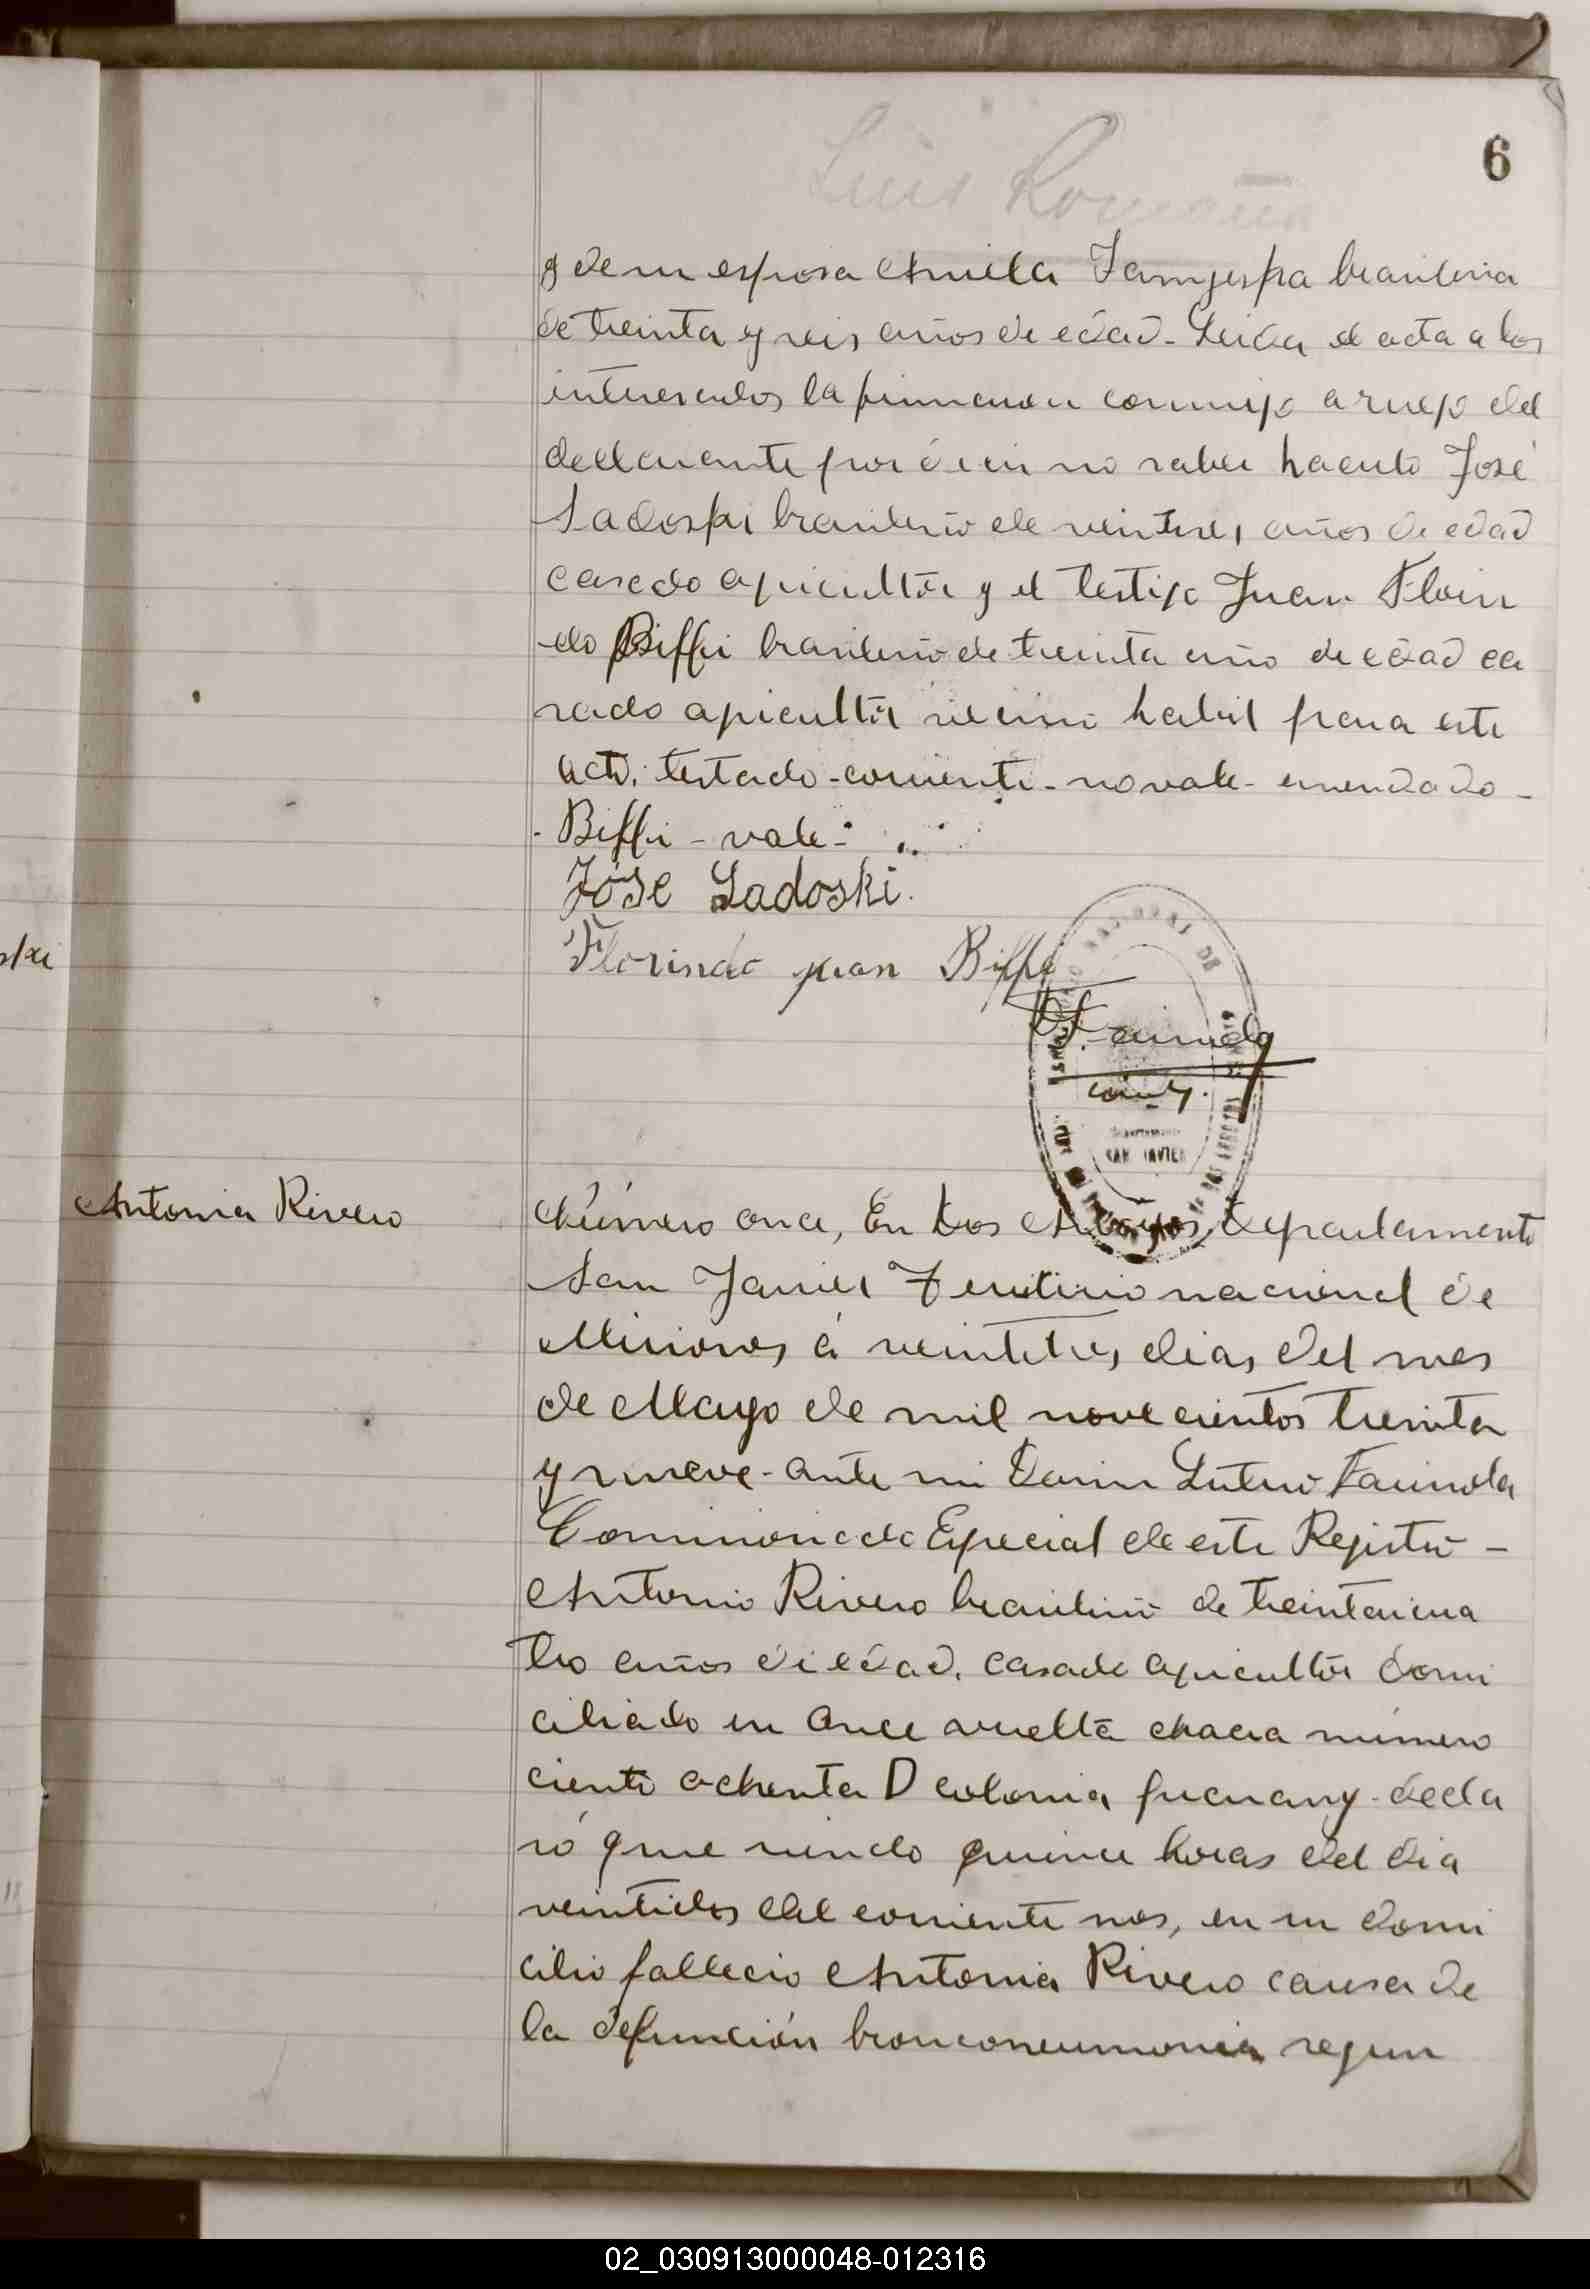 6
y de su esposa Amela brasilera
de treinta y seis años de edad - Leida el acta a los
interesados la firmaron conmigo a ruego del
declarante por decir no saber hacerlo José
Sadoski brasilero de veintitres años de edad
casado agricultor y el testigo Juan Florin
do Biffi brasilero de treinta año de edad ca
sado agricultor vecino habil para este
acto. testado - corriente - no vale - enmendado -
- Biffi - vale -
José Sadoski.
Florindo juan Biffi
SAN JAVIER
Antonia Rivero
Número once, En Los Arroyos Departamento
San Javier Territorio nacional de
Misiones á veintitres dias del mes
de Mayo de mil novecientos treinta
y nueve - ante mi Farinola
Comisionado Especial de este Rejistro -
Antonio Rivero brasilero de treintaicua
tro años de edad, casado agricultor domi
ciliado en Once vuelta chacra número
ciento ochenta D colonia guarany - decla
ró que siendo quince horas del dia
veintidos del corriente mes, en su domi
cilio fallecio Antonia Rivero causa de
la defunción bronconeumonia segun
02_030913000048-012316